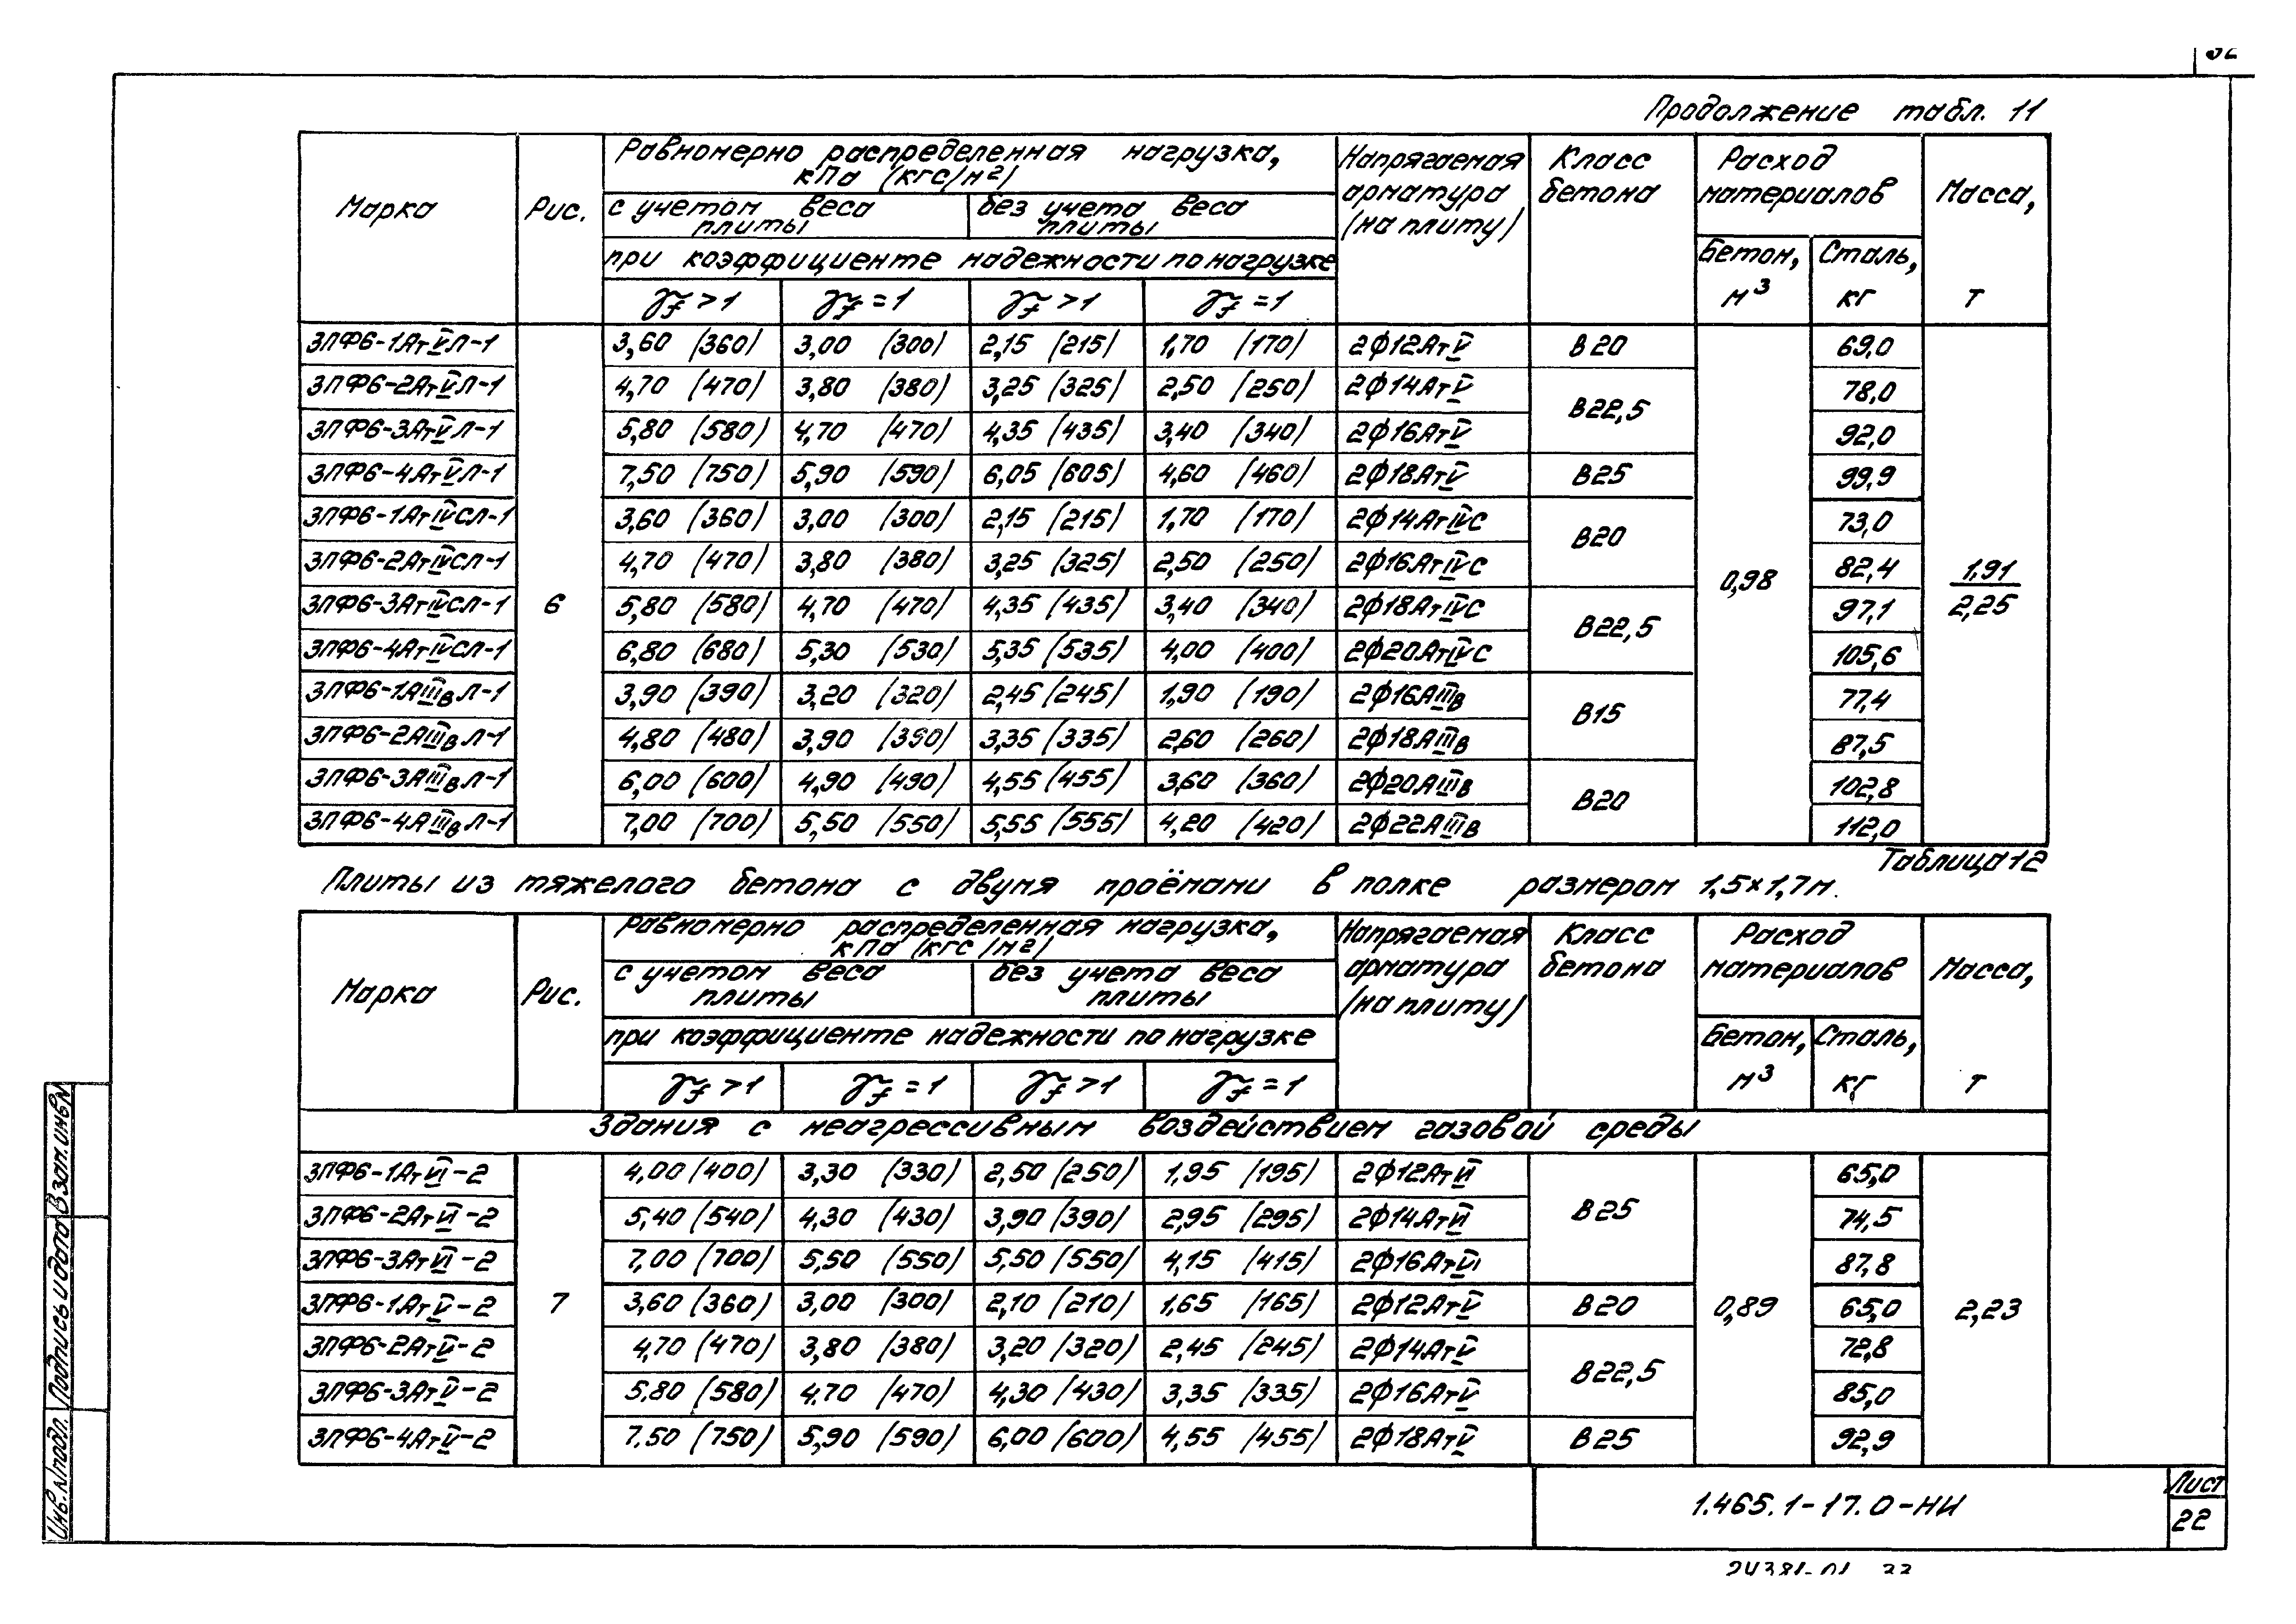 Продолжение табл. 11
Марка
Рис.
Равномерно распределенная нагрузка,
кПа (кгс/м²)
с учетом веса
плиты
без учета веса
плиты
при коэффициенте надежности по нагрузке
γf >1 γf =1 γf >1 γf =1
Напрягаемая
арматура
(на плиту)
Класс
бетона
Расход
материалов
Бетон,
м³
Сталь,
кг
Масса,
т
3ПФ6-1АтVЛ-1 3,60 (360) 3,00 (300) 2,15 (215) 1,70 (170) 2ф12АтV В20 69,0
3ПФ6-2АтVЛ-1 4,70 (470) 3,80 (380) 3,25 (325) 2,50 (250) 2ф14АтV В22,5 78,0
3ПФ6-3АтVЛ-1 5,80 (580) 4,70 (470) 4,35 (435) 3,40 (340) 2ф16АтV 92,0
3ПФ6-4АтVЛ-1 7,50 (750) 5,90 (590) 6,05 (605) 4,60 (460) 2ф18АтV В25 99,9
3ПФ6-1АтIVСЛ-1 3,60 (360) 3,00 (300) 2,15 (215) 1,70 (170) 2ф14АтIVС В20 73,0
3ПФ6-2АтIVСЛ-1 4,70 (470) 3,80 (380) 3,25 (325) 2,50 (250) 2ф16АтIVС 82,4
3ПФ6-3АтIVСЛ-1 6 5,80 (580) 4,70 (470) 4,35 (435) 3,40 (340) 2ф18АтIVС В22,5 0,98 97,1 1,91/2,25
3ПФ6-4АтIVСЛ-1 6,80 (680) 5,30 (530) 5,35 (535) 4,00 (400) 2ф20АтIVС 105,6
3ПФ6-1АIIIвЛ-1 3,90 (390) 3,20 (320) 2,45 (245) 1,90 (190) 2ф16АIIIв В15 77,4
3ПФ6-2АIIIвЛ-1 4,80 (480) 3,90 (390) 3,35 (335) 2,60 (260) 2ф18АIIIв 87,5
3ПФ6-3АIIIвЛ-1 6,00 (600) 4,90 (490) 4,55 (455) 3,60 (360) 2ф20АIIIв В20 102,8
3ПФ6-4АIIIвЛ-1 7,00 (700) 5,50 (550) 5,55 (555) 4,20 (420) 2ф22АIIIв 112,0
Таблица 12
Плиты из тяжелого бетона с двумя проёмами в полке размером 1,5×1,7м.
Марка
Рис.
Равномерно распределенная нагрузка,
кПа (кгс/м²)
с учетом веса
плиты
без учета веса
плиты
при коэффициенте надежности по нагрузке
γf >1 γf =1 γf >1 γf =1
Напрягаемая
арматура
(на плиту)
Класс
бетона
Расход
материалов
Бетон,
м³
Сталь,
кг
Масса,
т
Здания с неагрессивным воздействием газовой среды
3ПФ6-1АтVI-2 4,00 (400) 3,30 (330) 2,50 (250) 1,95 (195) 2ф12АтVI В25 65,0
3ПФ6-2АтVI-2 5,40 (540) 4,30 (430) 3,90 (390) 2,95 (295) 2ф14АтVI 74,5
3ПФ6-3АтVI-2 7,00 (700) 5,50 (550) 5,50 (550) 4,15 (415) 2ф16АтVI 87,8
3ПФ6-1АтV-2 7 3,60 (360) 3,00 (300) 2,10 (210) 1,65 (165) 2ф12АтV В20 0,89 65,0 2,23
3ПФ6-2АтV-2 4,70 (470) 3,80 (380) 3,20 (320) 2,45 (245) 2ф14АтV В22,5 72,8
3ПФ6-3АтV-2 5.80 (580) 4.70 (470) 4,30 (430) 3,35 (335) 2ф16АтV 85,0
3ПФ6-4АтV-2 7.50 (750) 5,90 (590) 6,00 (600) 4,55 (455) 2ф18АтV В25 92,9
1.465.1-17.0-НИ
Лист
22
Инв.№подл. Подпись и дата Взам.инв№